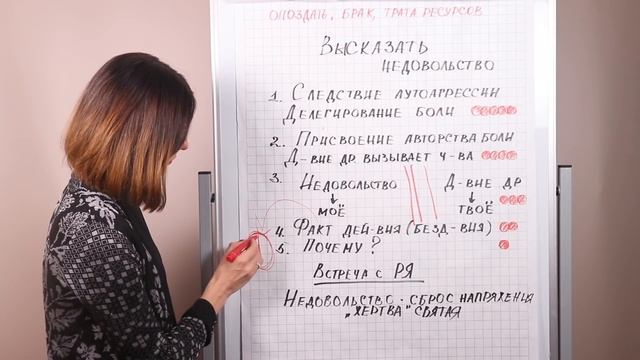 ОПОЗДАТЬ, БРАК, ТРАТА РЕСУРСОВ
ВЫСКАЗАТЬ
НЕДОВОЛЬСТВО
1. СЛЕДСТВИЕ АУТОАГРЕССИИ
ДЕЛЕГИРОВАНИЕ БОЛИ
2. ПРИСВОЕНИЕ АВТОРСТВА БОЛИ
Д-ВИЕ ДР. ВЫЗЫВАЕТ Ч-ВА
3. НЕДОВОЛЬСТВО Д-ВИЕ ДР
МОЁ ТВОЁ
4. ФАКТ ДЕЙ-ВИЯ (БЕЗД-ВИЯ)
5. ПОЧЕМУ?
ВСТРЕЧА С РЯ
НЕДОВОЛЬСТВО - СБРОС НАПРЯЖЕНИЯ
"ЖЕРТВА" СВЯТАЯ